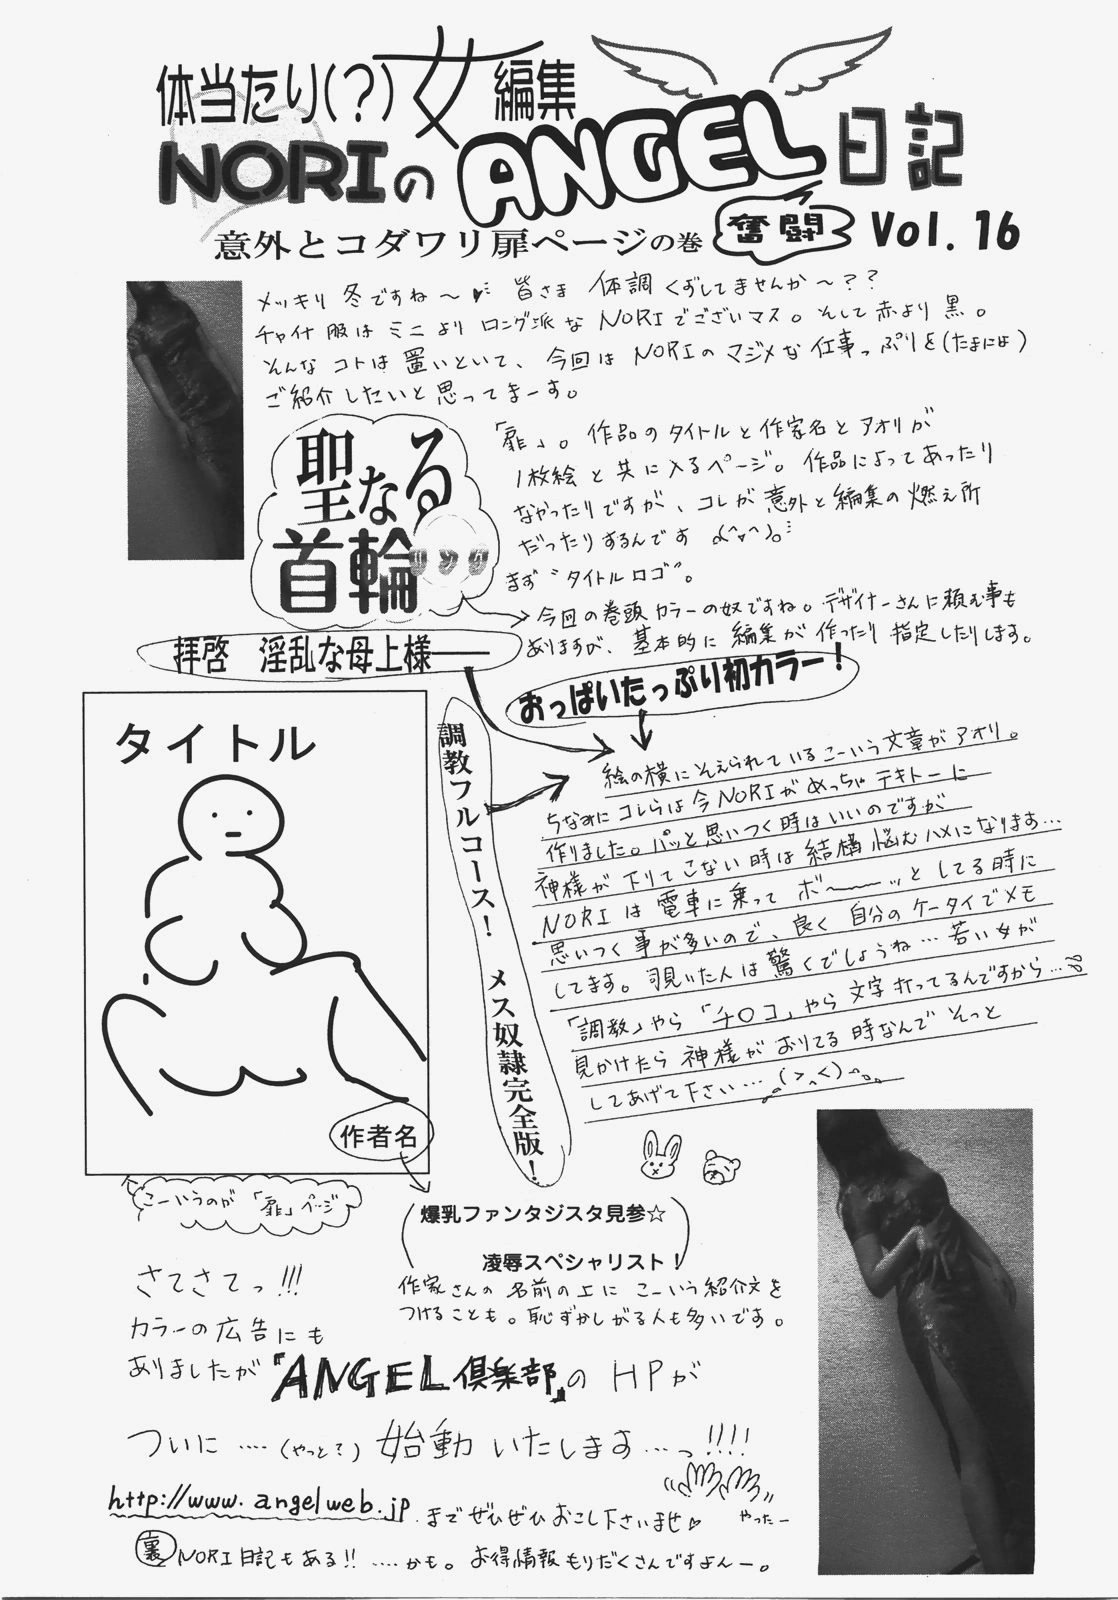 体当たり(?)女編集
NORIのANGEL日記
意外とコダワリ扉ページの巻 奮闘 Vol. 16
メッキリ冬ですね〜 皆さま 体調くずしてませんか〜??
チャイナ服はミニよりロング派なNORIでございマス。そして赤より黒。
そんなコトは置いといて、今回はNORIのマジメな仕事っぷりを(たまにはよ)
ご紹介したいと思ってまーす。
聖なる
首輪
「扉」。作品のタイトルと作家名とアオリが
1枚絵と共に入るページ。作品によってあったり
なかったりですが、コレが意外と編集の燃え所
だったりするんです
まず"タイトルロゴ"。
今回の巻頭カラーの奴ですね。デザイナーさんに頼む事も
ありますが、基本的に編集が作ったり指定したりします。
拝啓 淫乱な母上様――
おっぱいたっぷり初カラー!
調教フルコース! メス奴隷完全版!
絵の横にそえられているこーいう文章がアオリ。
ちなみにコレらは今NORIがめっちゃテキトーに
作りました。パッと思いつく時はいいのですが
神様が下りてこない時は結構悩むハメになります…
NORIは電車に乗ってボ〜〜ッとしてる時に
思いつく事が多いので、良く自分のケータイでメモ
してます。覗いた人は驚くでしょうね…若い女が
「調教」やら「チ○コ」やら文字打ってるんですから…
見かけたら神様がおりてる時なんでそっと
してあげて下さい…(>_<)
タイトル
作者名
こーいうのが「扉」ページ
爆乳ファンタジスタ見参☆
凌辱スペシャリスト!
作家さんの名前の上にこーいう紹介文を
つけることも。恥ずかしがる人も多いです。
さてさてっ!!!
カラーの広告にも
ありましたが『ANGEL倶楽部』のHPが
ついに‥‥(やっと?)始動いたします…っ!!!!
やったー
http://www.angelweb.jp までぜひぜひおこし下さいませ
裏NORI日記もある!!‥‥かも。お得情報もりだくさんですよんー。